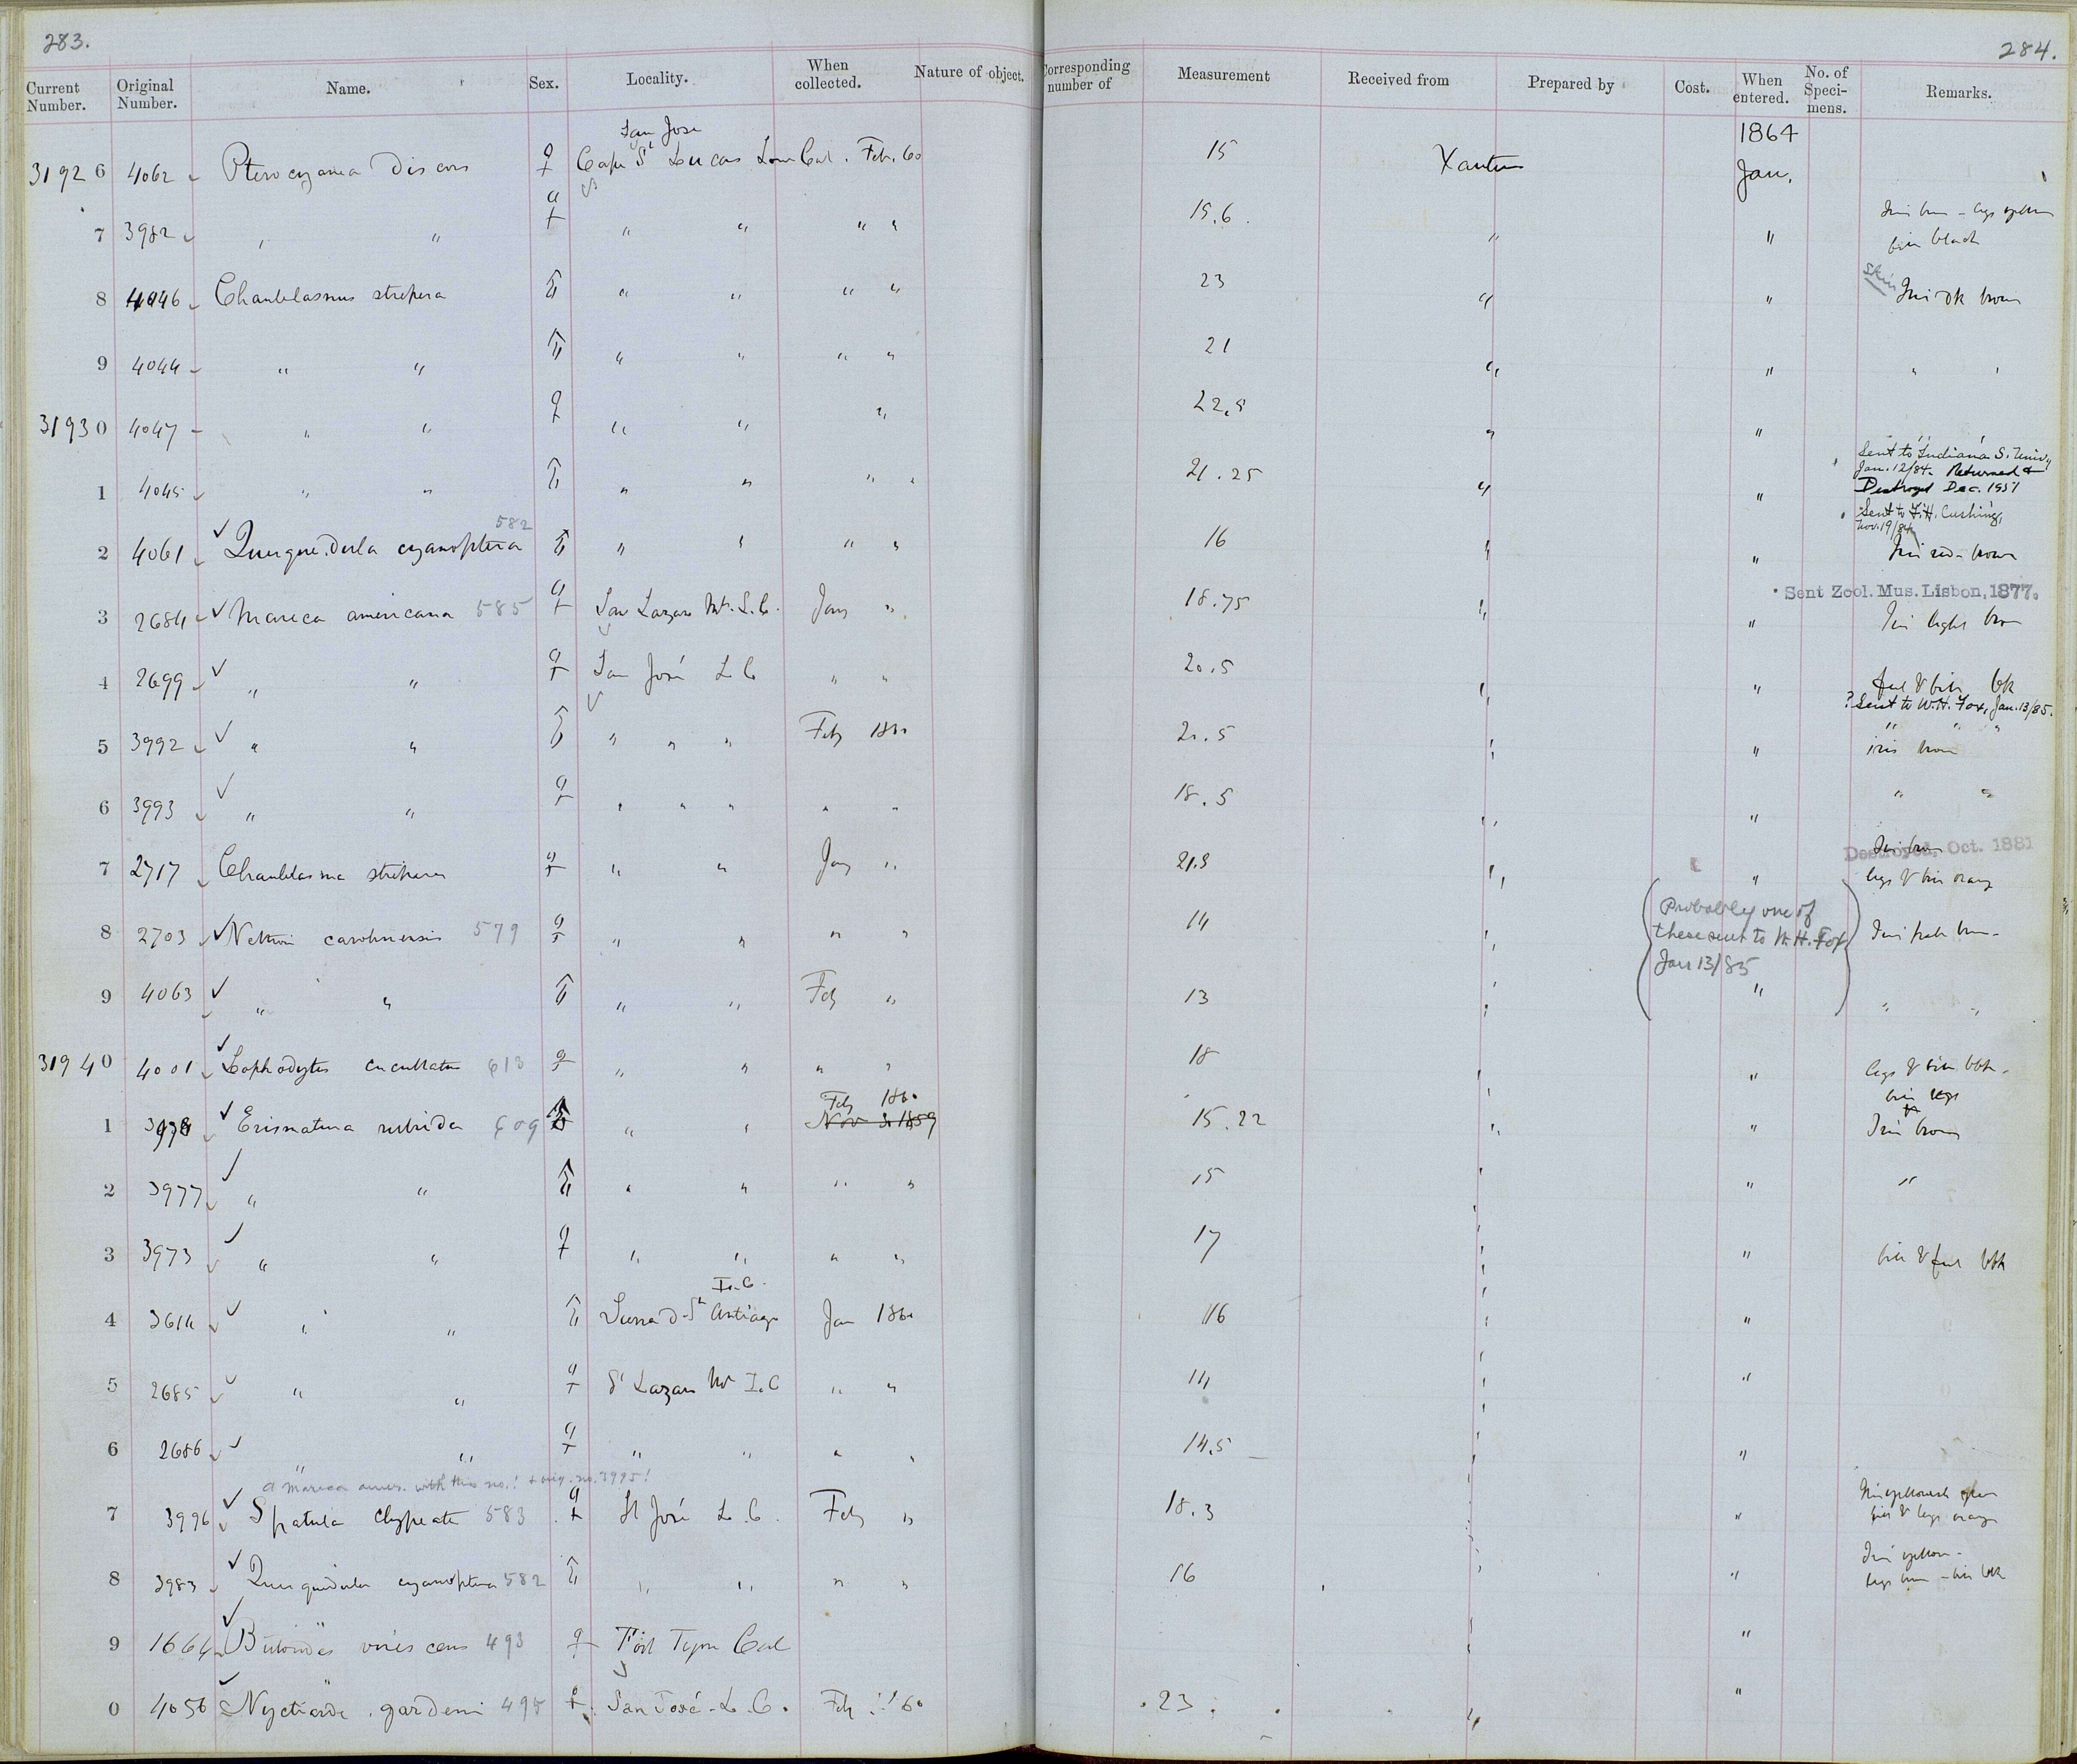 283.
284.
Current Number. Original Number. Name. Sex. Locality. When collected. Nature of object. Corresponding number of Measurement Received from Prepared by Cost. When entered. No. of Speci-mens. Remarks.
San Jose 1864
31926 4062 Pterocyanea discors ♀ Cape St Lucas Low Cal. Feb. 60 15 Xantus Jan.
7 3982 " " ♀ " " " " 15.6 " "
bill black
Skin
8 4046 Chaulelasmus strepera ♂ " " " " 23 " " Iris dk brown
9 4044 " " ♂ " " " " 21 " " " "
31930 4047 " " ♀ " " " 22.5 " "
Sent to Indiana S. Univ.,
Jan. 12/84. Returned &
Destroyed Dec. 1951
1 4045 " " ♂ " " " " 21.25 " "
Sent to F.H. Cushing,
Nov. 19/84
2 4061 Querquedula cyanoptera 582 ♂ " " " " 16 " " Iris red-brown
Sent Zool. Mus. Lisbon, 1877.
3 2684 Mareca americana 585 ♀ San Lazaro Mts. L.C. Jany " 18.75 " " Iris light brown
4 2699 " " ♀ San José L C " " 20.5 " " feet & bill bk
? Sent to W.H. Fox, Jan. 13/85.
5 3992 " " ♂ " " " Feby 1860 20.5 " " iris brown
6 3993 " " ♀ " " " " " 18.5 " " " "
Destroyed, Oct. 1881
7 2717 Chaulelasma strepera ♀ " " Jany " 21.3 " " legs & bill orange
8 2703 Nettion carolinensis 579 ♀ " " " " 14 "
(Probably one of
these sent to W.H. Fox
Jan 13/85)
9 4063 " " ♂ " " Feby " 13 " " " "
31940 4001 Lophodytes cucullatus 613 ♀ " " " " 18 " " legs & bill blk.
Feby 1860
1 3978 Erismatura rubida 609 ♂ " " Nov 1859 15.22 " " Iris brown
2 3977 " " ♂ " " " " 15 " " "
3 3973 " " ♀ " " " " 17 " " bill & feet blk
L.C.
4 3614 " " ♂ Sierra d. St Antiago Jan 1860 16 " "
5 2685 " " ♀ S Lazaro Mt L.C " " 14 " "
6 2686 " " ♀ " " " " 14.5 " "
a Mareca amer. with this no.! & orig. no. 3995!
7 3996 Spatula clypeata 583 ♀ St José L.C. Feby " 18.3 " "
bill & legs orange
8 3983 Querquedula cyanoptera 582 ♂ " " " " 16 " "
9 1664 Butorides virescens 493 ♀ Fort Tejon Cal " "
0 4056 Nyctiardea gardeni 495 ♀ San José L.C. Feby " 60 23 " "